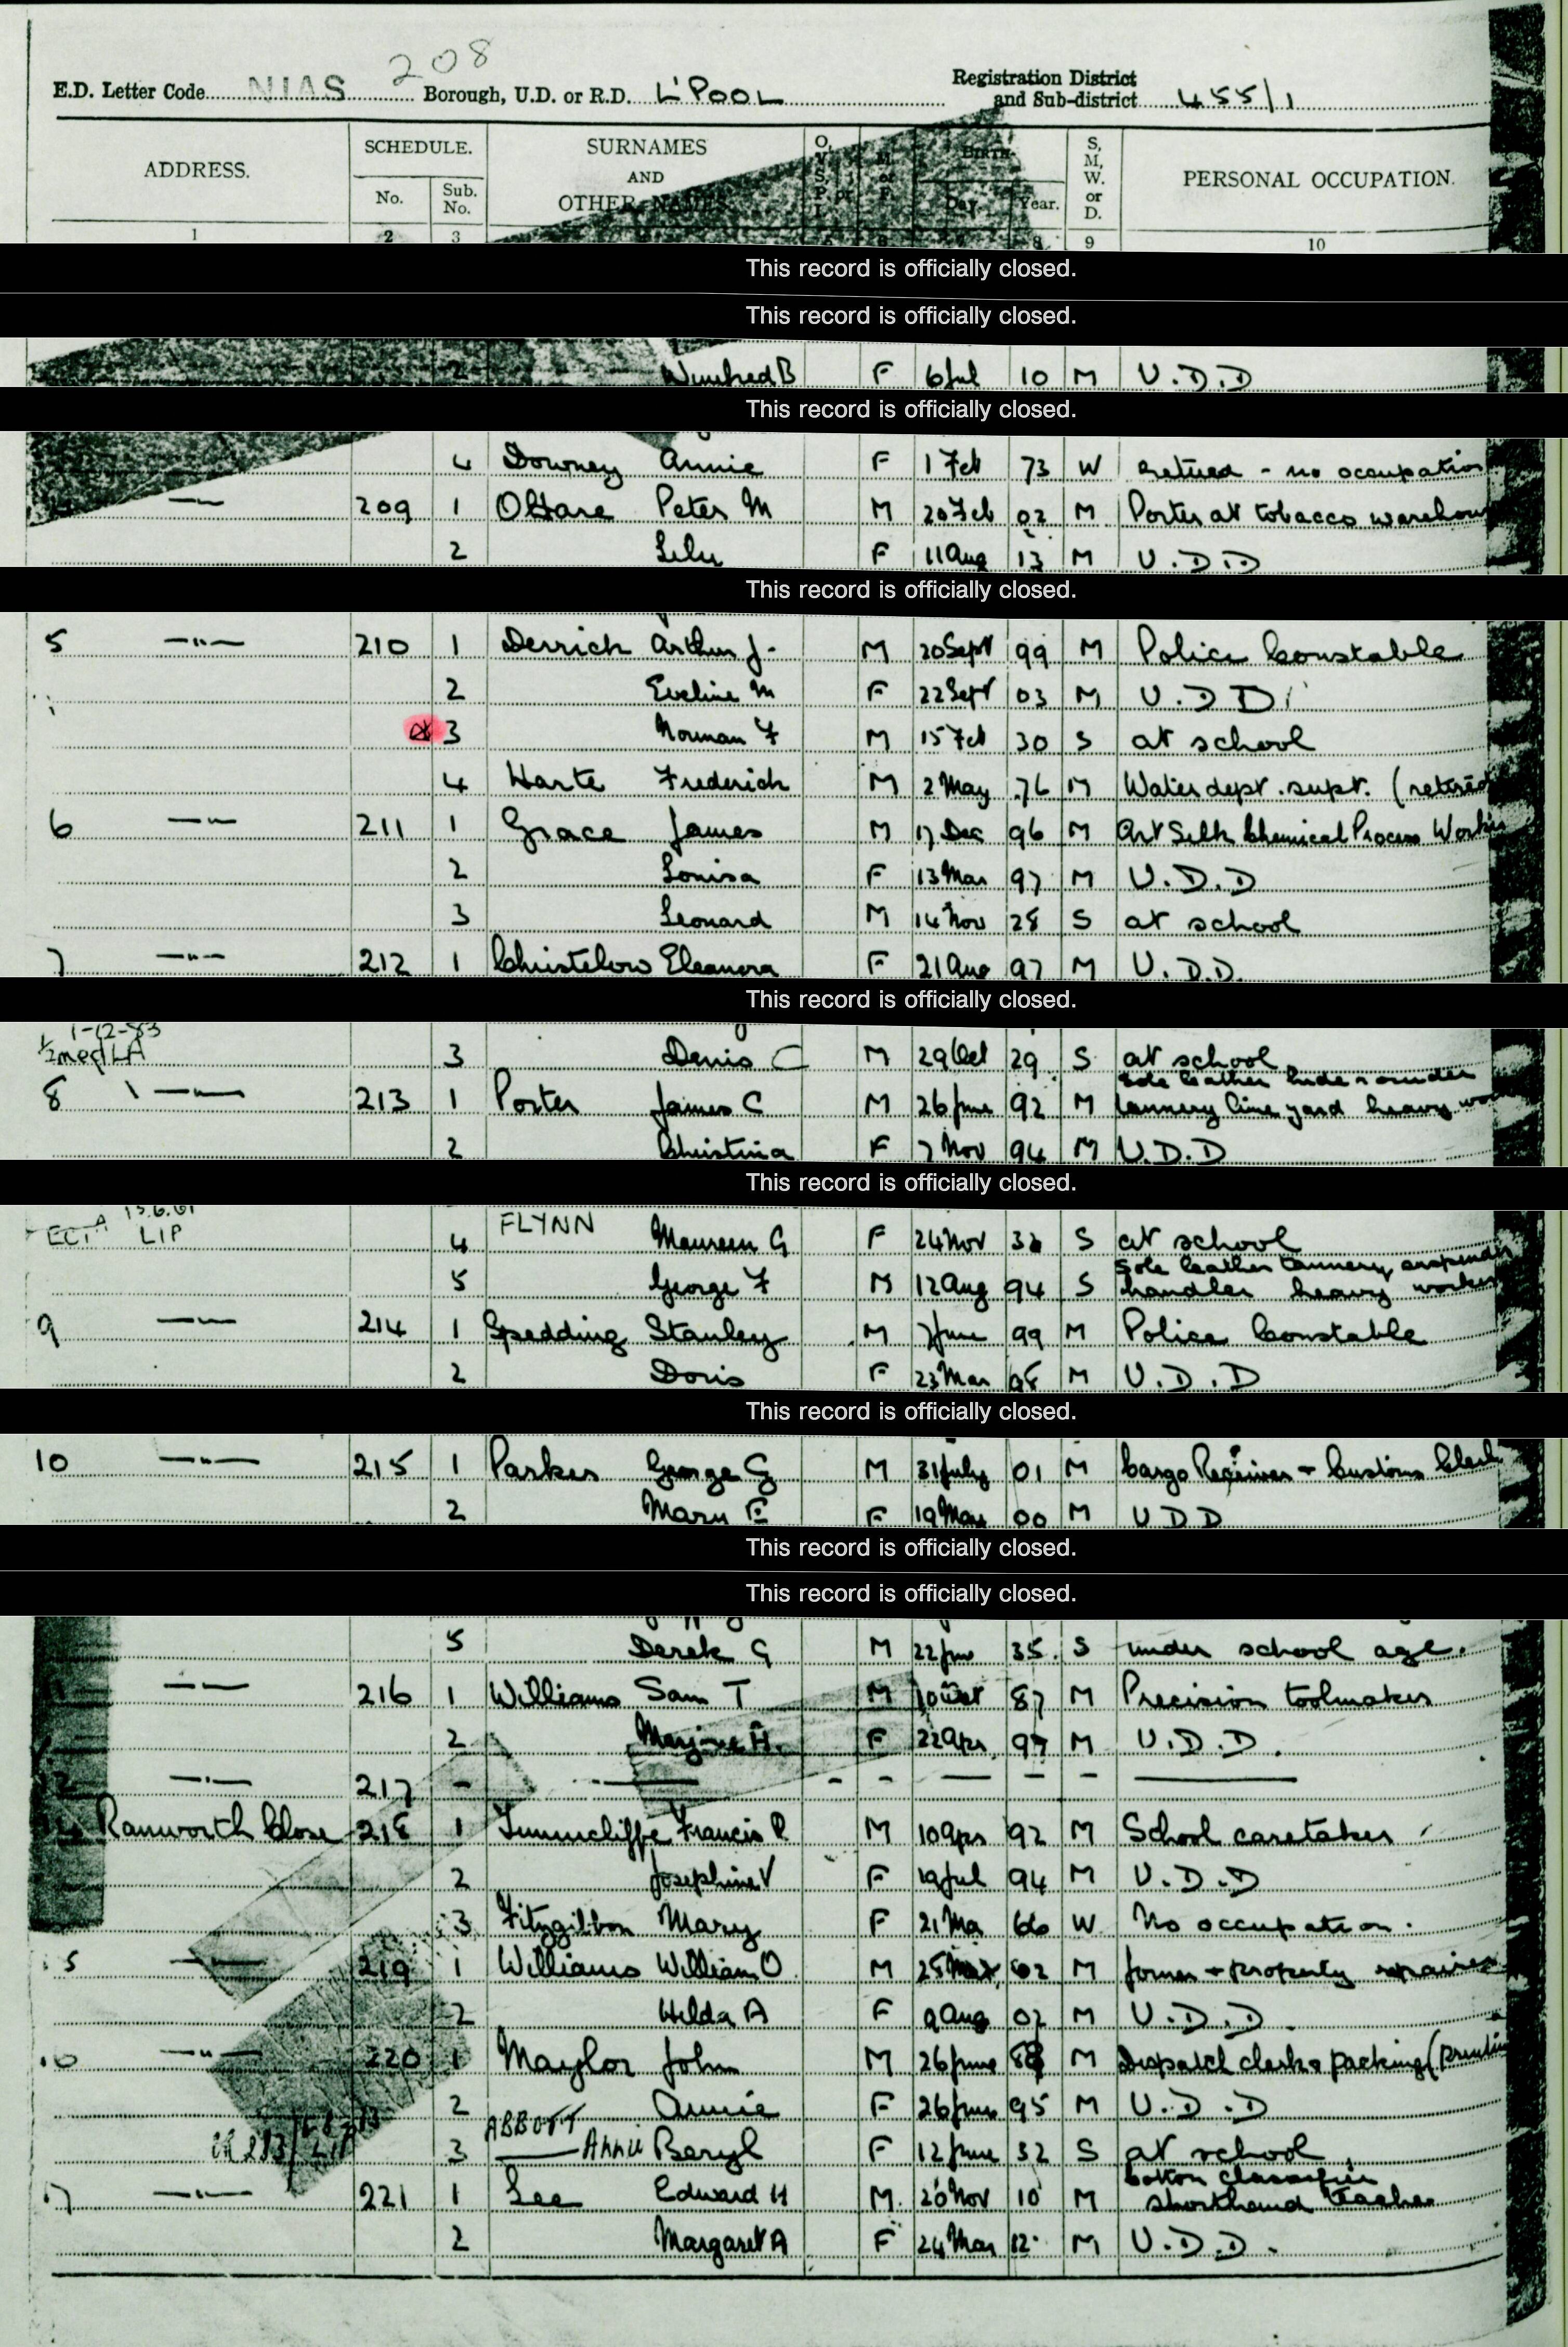 208
E.D. Letter Code NIAS Borough, U.D. or R.D. L'POOL Registration District and Sub-district 455/1
ADDRESS. SCHEDULE. No. Sub. No. SURNAMES AND OTHER NAMES. O, V, S, P, or I. M. or F. BIRTH- Day Year. S, M, W. or D. PERSONAL OCCUPATION.
1 2 3 8 9 10
This record is officially closed.
This record is officially closed.
2 Winifred B F 6 Jul 10 M U.D.D
This record is officially closed.
4 Downey Annie F 1 Feb 73 W retired - no occupation
—"— 209 1 O'Hare Peter M M 20 Feb 02 M Porter at tobacco warehou
2 Lily F 11 Aug 13 M U.D.D
This record is officially closed.
5 —"— 210 1 Derrick Arthur J. M 20 Sept 99 M Police Constable
2 Eveline M F 22 Sept 03 M U.D.D
3 Norman F M 15 Feb 30 S at school
4 Harte Frederick M 2 May 76 M Water dept. supt. (retired
6 —"— 211 1 Grace James M 17 Dec 96 M Art Silk Chemical Process Worker
2 Louisa F 13 Mar 97 M U.D.D
3 Leonard M 14 Nov 28 S at school
7 —"— 212 1 Christelow Eleanora F 21 Aug 97 M U.D.D.
This record is officially closed.
1-12-83
3 Denis C M 29 Oct 29 S at school
8 —"— 213 1 Porter James C M 26 June 92 M Sole leather hide rounder tannery lime yard heavy wo
2 Christina F 7 Nov 94 M U.D.D
This record is officially closed.
15.6.61
LIP 4 FLYNN Maureen G F 24 Nov 3 S at school
5 George F M 12 Aug 94 S Sole leather tannery handler heavy worker
9 —"— 214 1 Spedding Stanley M 7 June 99 M Police Constable
2 Doris F 23 Mar 98 M U.D.D
This record is officially closed.
10 —"— 215 1 Parker George G M 31 July 01 M Cargo Receiver + Customs Clerk
2 Mary E F 19 May 00 M U D D
This record is officially closed.
This record is officially closed.
5 Derek G M 22 Jun 35 S under school age.
—"— 216 1 Williams Sam T M 10 Oct 87 M Precision toolmaker
2 Marjorie H. F 22 Apr 97 M U.D.D.
12 —"— 217 - — - - — - - —
Ranworth Close 218 1 Tunnicliffe Francis R M 10 Apr 92 M School caretaker
2 Josephine V F 19 Jul 94 M U.D.D
3 Fitzgibbon Mary F 21 Ma 66 W No occupation.
5 —"— 219 1 Williams William O M 25 02 M property repairer
2 Hilda A F 9 Aug 02 M U.D.D.
—"— 220 1 Maylor John M 26 June M Dispatch clerk & packing (printin
2 Annie F 26 June 95 M U.D.D
3 ABBOTT Annie Beryl F 12 June 32 S at school
17 —"— 221 1 Lee Edward H M 20 Nov 10 M Cotton classifier shorthand teacher
2 Margaret A F 24 Mar 12 M U.D.D.